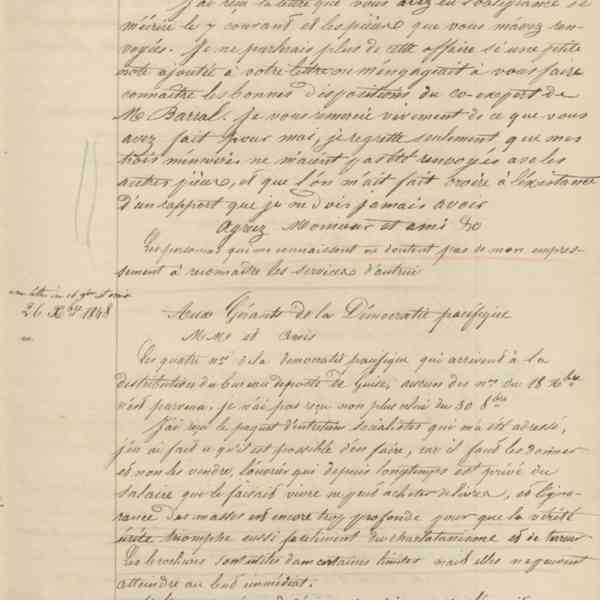 J'ai reçu la lettre que vous avez eu l'obligeance de
m'écrire le 7 courant et les pièces que vous m'avez ren-
voyées. Je ne parlerais plus de cette affaire si une petite
note ajoutée à votre lettre ne m'engageait à vous faire
connaître les bonnes dispositions du co-expert de
M Barral. Je vous remercie vivement de ce que vous
avez fait pour moi, je regrette seulement que mes
trois mémoires ne m'aient pas été renvoyés avec les
autres pièces, et que l'on m'ait fait croire à l'existence
d'un rapport que je ne dois jamais avoir
Agréez Monsieur et ami &c
Les personnes qui me connaissent ne doutent pas de mon empres-
sement à reconnaître les services d'autrui
26 Xbre 1848
Aux Gérants de la Démocratie pacifique
MMs et Amis
Les quatre nos de la démocratie pacifique qui arrivent à la
distribution du bureau de poste de Guise, aucuns des nos du 18 Xbre
n'est parvenu, je n'ai pas reçu non plus celui du 30 8bre
J'ai reçu le paquet d'entretiens socialistes qui m'a été adressé,
j'en ai fait ce qu'il est possible d'en faire, car il faut les donner
et non les vendre, l'ouvrier qui depuis longtemps est privé du
salaire que le faisait vivre ne peut acheter de livres, et l'igno-
rance des masses est encore trop profonde pour que la vérité
écrite triomphe aussi facilement du charlatanisme et de l'erreur
Les brochures sont utiles dans certaines limites mais elles ne peuvent
atteindre au but immédiat.